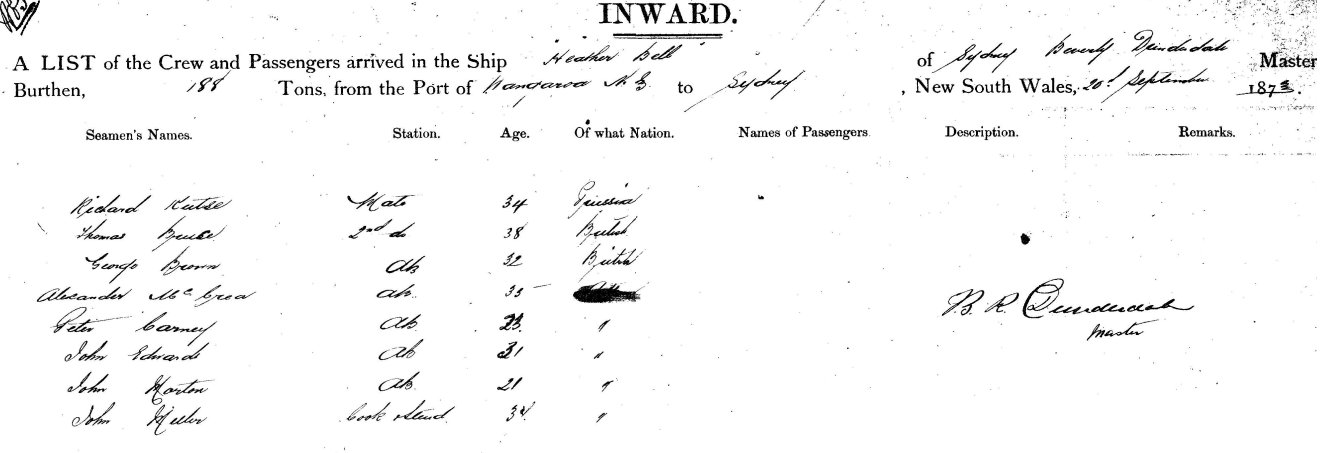 INWARD.
A LIST of the Crew and Passengers arrived in the Ship Heather Bell of Sydney Beverly Master
Burthen, 188 Tons, from the Port of Wangaroa N.Z to Sydney, New South Wales, 20th September 1873.
Seamen's Names. Station. Age. Of what Nation. Names of Passengers. Description. Remarks.
Richard Mate 34 Prussia
Thomas Bruce 2nd do 38 British
George Brown AB 32 British
Alexander McCrea AB 35
Peter Carney AB 23 "
John Edwards AB 31 "
John AB 21 "
John Cook & Steud 34 "
B. R.
Master